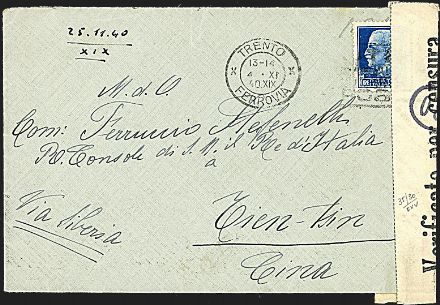 25.11.40
XIX
TRENTO
13-14
4 · XI
40.XIX
FERROVIA
M. d. O
Com: Ferruccio Stefenelli
R. Console di S. M. il Re d'Italia
a
Via Siberia
Tien-Tsin
Cina
Verificato per censura
35/30
XXV